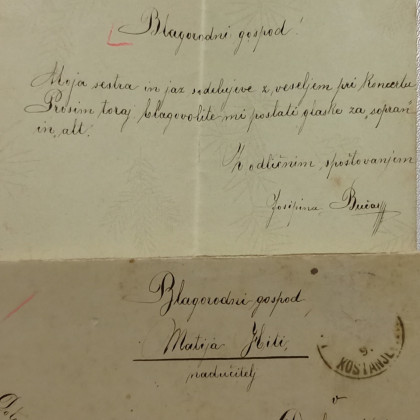 Blagorodni gospod!
Moja sestra in jaz sodelujeve z veseljem pri koncertu
Prosim toraj blagovolite mi poslati glaske za „sopran“
in „alt.“
Z odličnim spoštovanjem
Josipina
Blagorodni gospod
Matija Hiti,
nadučitelj
9.
KOSTANJE